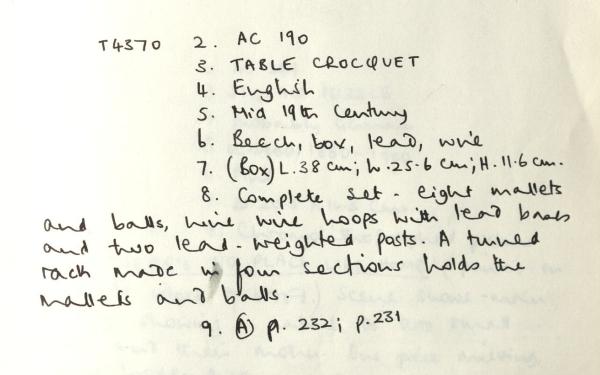 T4370 2. AC 190
3. TABLE CROCQUET
4. English
5. Mid 19th Century
6. Beech, box, lead, wire
7. (Box) L.38 cm; W.25.6 cm; H.11.6 cm.
8. Complete set - eight mallets
and balls, nine wire hoops with lead bases
and two lead-weighted posts. A turned
rack made w four sections holds the
mallets and balls.
9. (A) p. 232; p.231